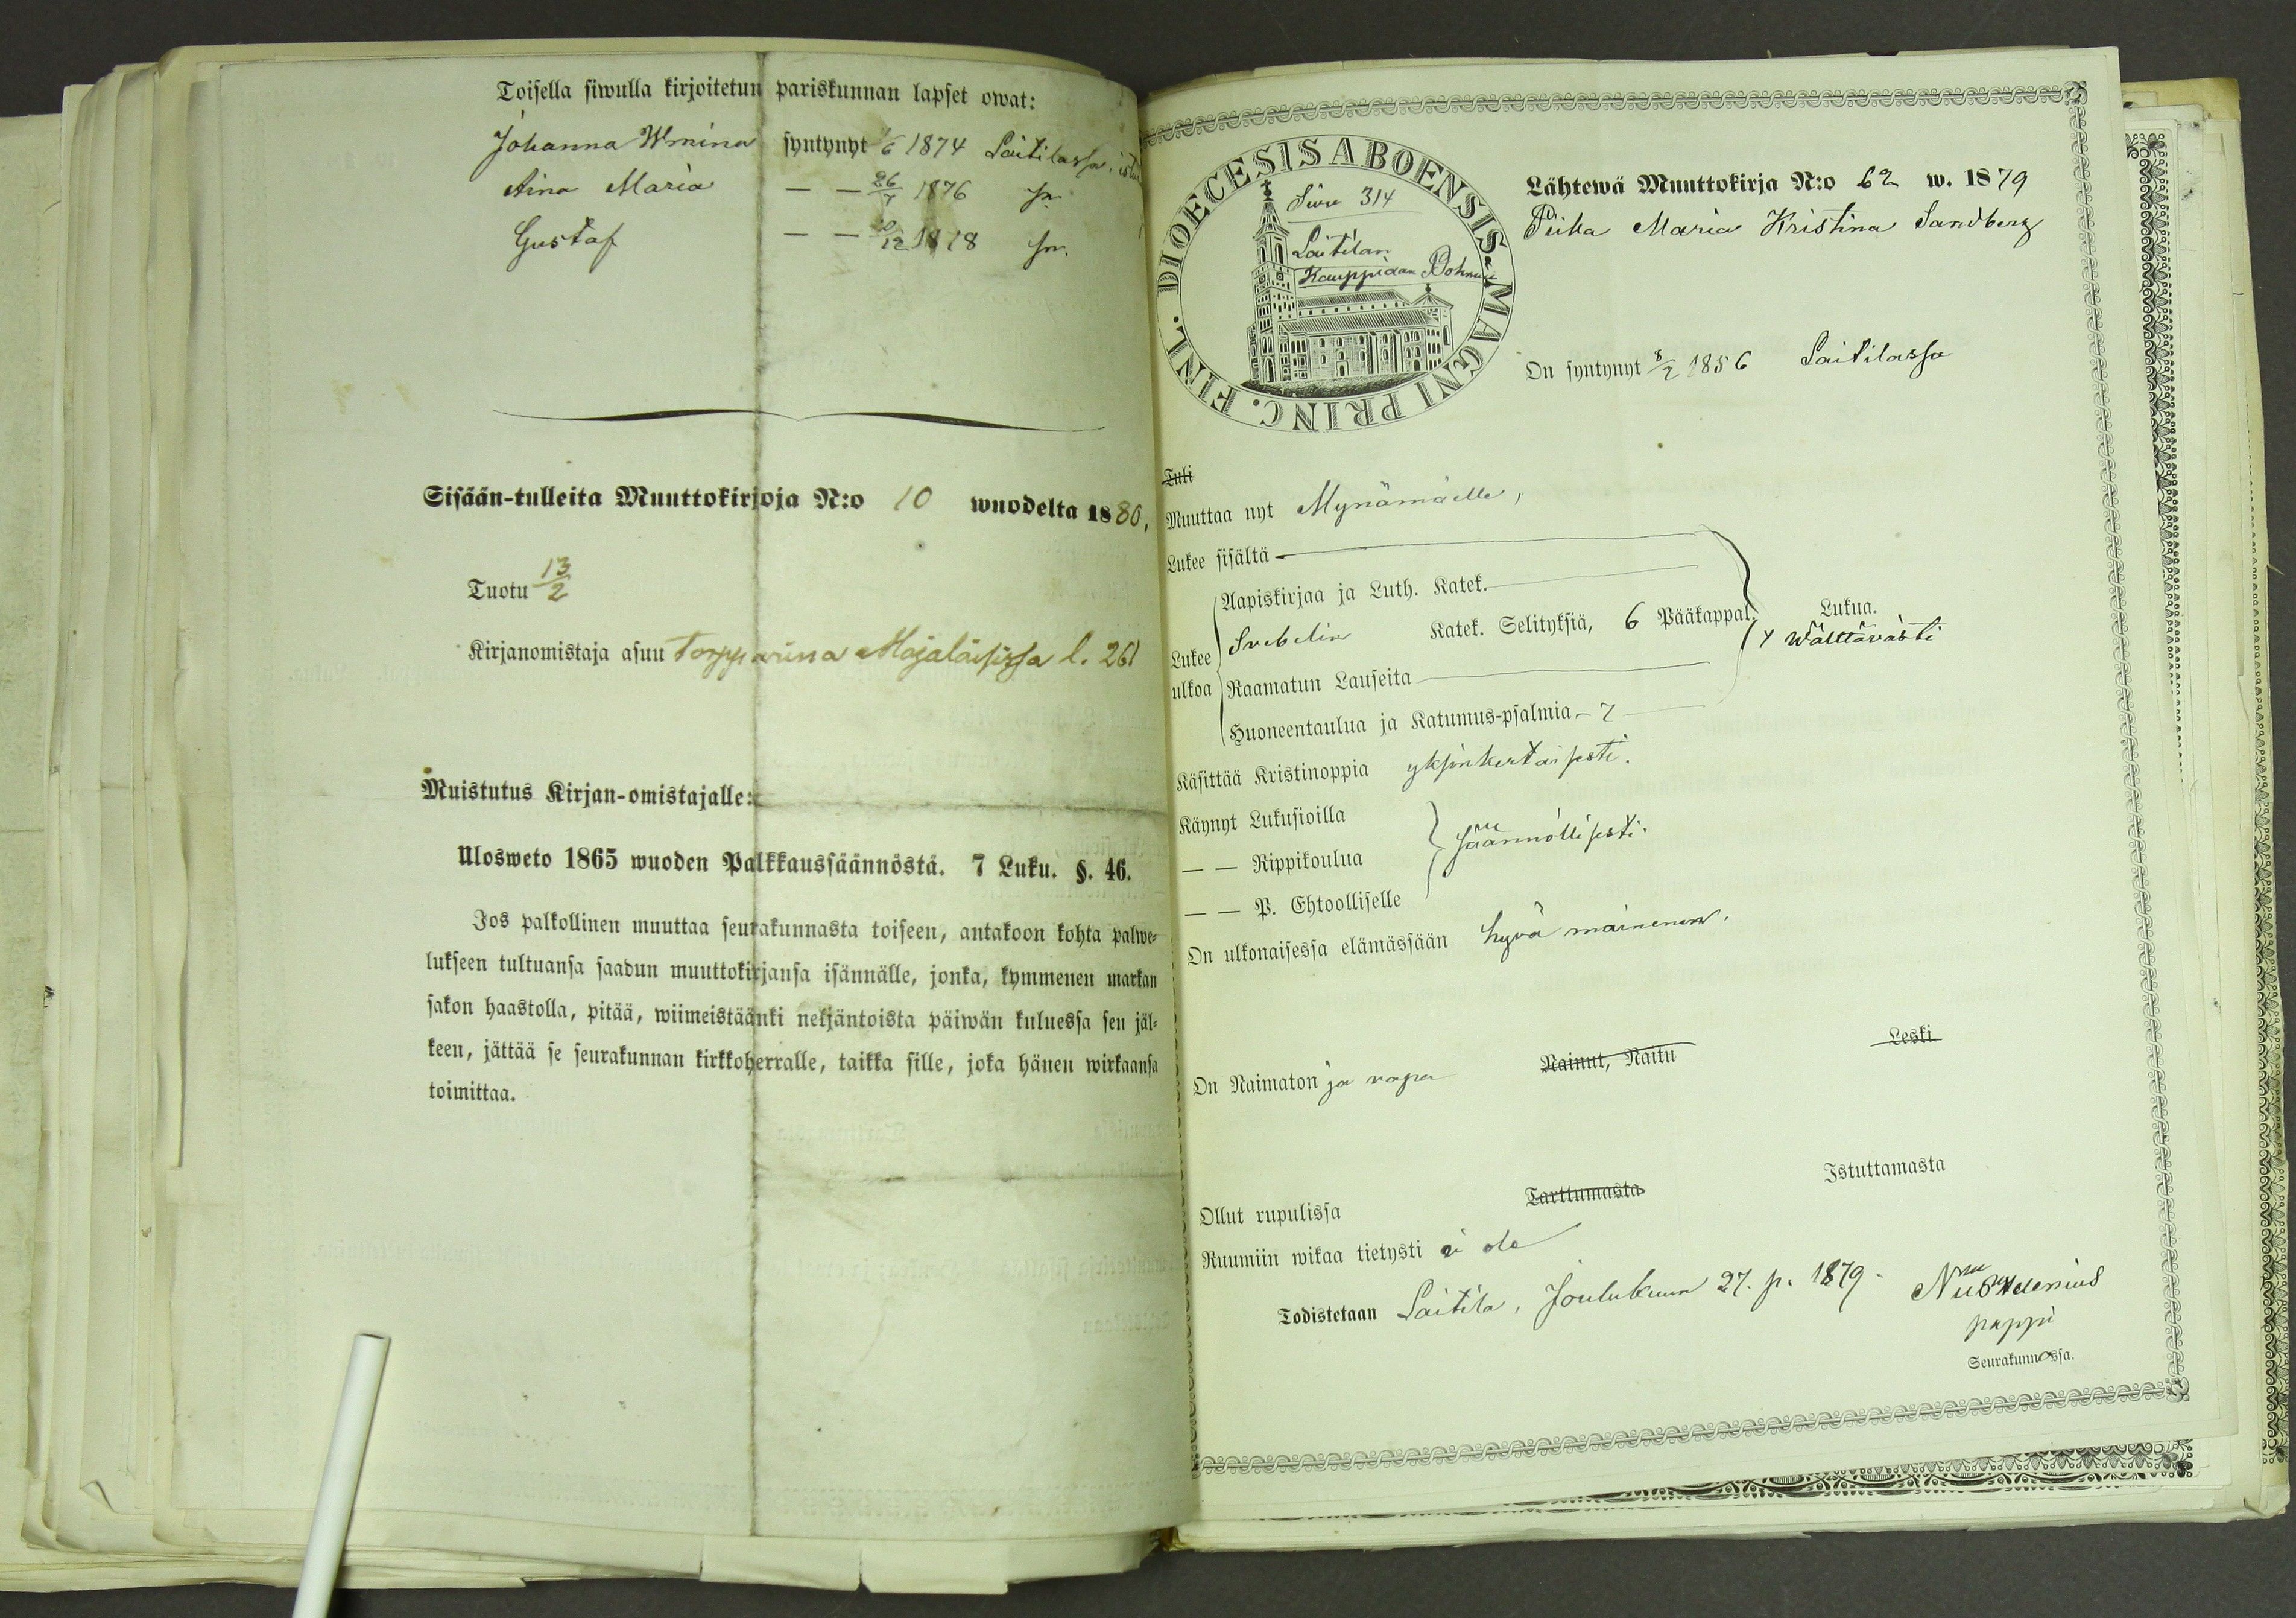 Toisella siwulla kirjoitetun pariskunnan lapset owat:
Johanna Wmina syntynyt 1/6 1874 Laitilassa,
Aina Maria — — 26/7 1876 sn.
Gustaf — — 20/12 1878 sn.
Sisään-tulleita Muuttokirjoja N:o 10 wuodelta 1880,
Tuotu 13/2
Kirjanomistaja asuu torpparina Majaloisissa l. 261
Muistutus Kirjan-omistajalle:
Ulosweto 1865 wuoden Palkkaussäännöstä. 7 Luku. §. 46.
Jos palkollinen muuttaa seurakunnasta toiseen, antakoon kohta palwe-
lukseen tultuansa saadun muuttokirjansa isännälle, jonka, kymmenen markan
sakon haastolla, pitää, wiimeistäänki neljäntoista päiwän kuluessa sen jäl-
keen, jättää se seurakunnan kirkkoherralle, taikka sille, joka hänen wirkaansa
toimittaa.
DIOECESIS ABOENSIS. MAGNI PRINC. FINL.
Sivu 314
Laitilan
Kauppiaan
Lähtewä Muuttokirja N:o 62 w. 1879
Piika Maria Kristina Sandberg
On syntynyt 8/2 1856 Laitilassa
Tuli
Muuttaa nyt Mynämäelle,
Lukee sisältä
Aapiskirjaa ja Luth. Katek.
Lukee ulkoa
Svebelin Katek. Selityksiä, 6 Pääkappal. Lukua.
wälttävästi
Raamatun Lauseita
Huoneentaulua ja Katumus-psalmia – 7
Käsittää Kristinoppia yksinkertaisesti.
Käynyt Lukusioilla
— — Rippikoulua säännöllisesti.
— — P. Ehtoolliselle
On ulkonaisessa elämässään hyvä maineinen.
On Naimaton ja vapa Nainut, Naitu Leski
Ollut rupulissa Tarttumasta Istuttamasta
Ruumiin wikaa tietysti ei ole
Todistetaan Laitila, Joulukuun 27. p. 1879.
pappi
Seurakunnassa.